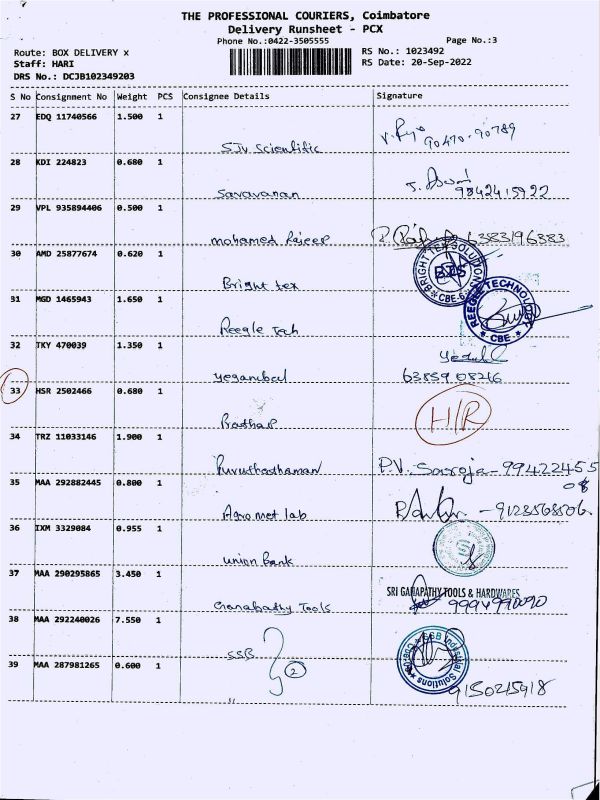 THE PROFESSIONAL COURIERS, Coimbatore
Delivery Runsheet - PCX
Phone No.:0422-3505555
Page No.:3
Route: BOX DELIVERY x
Staff: HARI
DRS No.: DCJB102349203
RS No.: 1023492
RS Date: 20-Sep-2022
S No Consignment No Weight PCS Consignee Details Signature
27 EDQ 11740566 1.500 1
SJV Scientific 90470-90789
28 KDI 224823 0.680 1
Saravanan 9842415922
29 VPL 935894406 0.500 1
mohamed 6383196383
30 AMD 25877674 0.620 1
Bright tex
BRIGHT TEX SOLUTIONS
BTS
CBE-6
31 MGD 1465943 1.650 1
Reegle Tech
REEGEE TECHNOLOGY
CBE-
32 TKY 470039 1.350 1
yeganibal 63859 08246
33 HSR 2502466 0.680 1
H/R
34 TRZ 11033146 1.900 1
Purushothaman P.V. Saroja - 994224455
08
35 MAA 292882445 0.800 1
Agromet lab - 9123568506
36 IXM 3329084 0.955 1
union Bank
37 MAA 290295865 3.450 1
SRI GANAPATHY TOOLS & HARDWARES
Ganabathy Tools 9994990090
38 MAA 292240026 7.550 1
SSB
2
SSB Industrial Solutions
39 MAA 287981265 0.600 1
9150215918
"